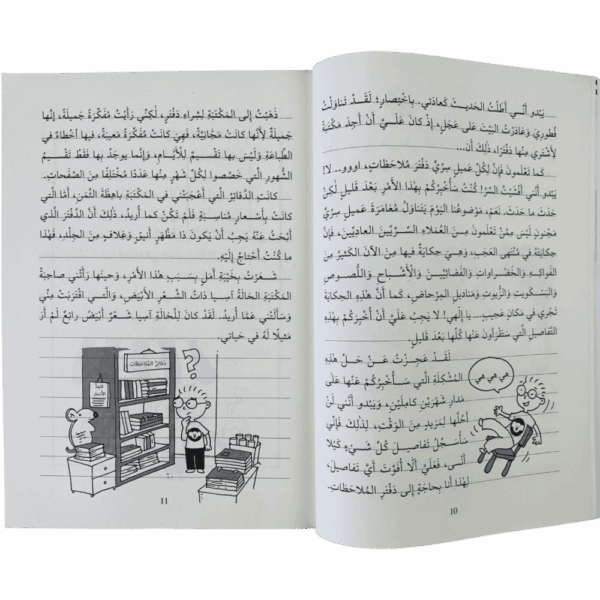 يَبْدو أَنّي أَطَلْتُ الْحَديثَ كَعادَتي.. بِاخْتِصارٍ؛ لَقَدْ تَناوَلْتُ
فَطوري، وَغادَرْتُ الْبَيْتَ عَلى عَجَلٍ، إِذْ كانَ عَلَيَّ أَنْ أَجِدَ مَكْتَبَةً
لِأَشْتَرِيَ مِنْها دَفْتَرًا، ذلِكَ أَنَّ...
كَما تَعْلَمونَ فَإِنَّ لِكُلِّ عَميلٍ سِرِّيٍّ دَفْتَرَ مُلاحَظاتٍ، اووو.. لا!
يَبْدو أَنّي أَفْشَيْتُ السِّرَّ! كُنْتُ سَأُخْبِرُكُمْ بِهذا الْأَمْرِ بَعْدَ قَليلٍ لكِنْ
حَدَثَ ما حَدَثَ. نَعَمْ، مَوْضوعُنا الْيَوْمَ يَتَناوَلُ مُغامَرَةَ عَميلٍ سِرِّيٍّ
مَجْنونٍ لَيْسَ مِمَّنْ تَعْلَمونَ مِنَ الْعُمَلاءِ السِّرِّيّينَ الْعادِيّينَ، فَإِنَّ
حِكايَتَهُ في مُنْتَهى الْعَجَبِ.. وَهِيَ حِكايَةٌ فيها مِنَ الْآنَ الْكَثيرُ مِنَ
الْفَواكِهِ وَالْخَضْراواتِ وَالْفَضائِيّينَ وَالْأَشْباحِ وَاللُّصوصِ
وَالْبَسْكَويتِ وَالزُّيوتِ وَمَناديلِ الْمِرْحاضِ، كَما أَنَّ هذِهِ الْحِكايَةَ
تَجْري في مَكانٍ عَجيبٍ... يا إِلهي! لا يَجِبُ عَلَيَّ أَنْ أُخْبِرَكُمْ بِهذِهِ
التَّفاصيلِ الَّتي سَتَقْرَأونَ عَنْها كُلِّها بَعْدَ قَليلٍ.
لَقَدْ عَجِزْتُ عَنْ حَلِّ هذِهِ
الْمُشْكِلَةِ الَّتي سَأُخْبِرُكُمْ عَنْها عَلى
مَدارِ شَهْرَيْنِ كامِلَيْنِ، وَيَبْدو أَنّي لَنْ
أَحُلَّها لِمَزيدٍ مِنَ الْوَقْتِ، لِذلِكَ، فَإِنّي
سَأُسَجِّلُ تَفاصيلَ كُلِّ شَيْءٍ كَيْلا
أَنْسى، فَعَلَيَّ أَلّا أُفَوِّتَ أَيَّ تَفاصيلَ،
لِهذا أَنا بِحاجَةٍ إِلى دَفْتَرِ الْمُلاحَظاتِ.
هي هي هي
10
ذَهَبْتُ إِلى الْمَكْتَبَةِ لِشِراءِ دَفْتَرٍ، لكِنّي رَأَيْتُ مُفَكِّرَةً جَميلَةً، إِنَّها
جَميلَةٌ لِأَنَّها كانَتْ مَجّانِيَّةً، فَهِيَ كانَتْ مُفَكِّرَةً مَعيبَةً، فيها أَخْطاءٌ في
الطِّباعَةِ وَلَيْسَ بِها تَقْسيمٌ لِلْأَيّامِ، وَإِنَّما يوجَدُ بِها فَقَطْ تَقْسيمُ
الشُّهورِ الَّتي خَصَّصوا لِكُلِّ شَهْرٍ مِنْها عَدَدًا مُخْتَلِفًا مِنَ الصَّفَحاتِ.
كانَتِ الدَّفاتِرُ الَّتي أَعْجَبَتْني في الْمَكْتَبَةِ باهِظَةَ الثَّمَنِ، أَمّا الَّتي
كانَتْ بِأَسْعارٍ مُناسِبَةٍ فَلَمْ تَكُنْ كَما أُريدُ، ذلِكَ أَنَّ الدَّفْتَرَ الَّذي
أَبْحَثُ عَنْهُ يَجِبُ أَنْ يَكونَ ذا مَظْهَرٍ أَنيقٍ وَغِلافٍ مِنَ الْجِلْدِ، فَهذا
ما كُنْتُ أَحْتاجُ إِلَيْهِ.
شَعَرْتُ بِخَيْبَةِ أَمَلٍ بِسَبَبِ هذا الْأَمْرِ، وَحينَها رَأَتْني صاحِبَةُ
الْمَكْتَبَةِ الْخالَةُ آسِيا ذاتُ الشَّعْرِ الْأَبْيَضِ، وَالَّتي اقْتَرَبَتْ مِنّي
وَسَأَلَتْني عَمّا أُريدُ.. لَقَدْ كانَ لِلْخالَةِ آسِيا شَعْرٌ أَبْيَضُ رائِعٌ لَمْ أَرَ
مَثيلًا لَهُ في حَياتي.
دَفاتِرُ الْمُلاحَظاتِ
?
11